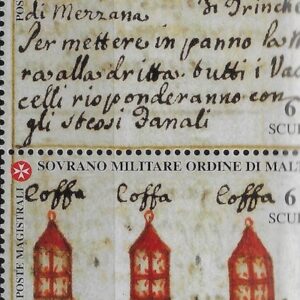 di Merzana di Trinche
Per mettere in panno la
ra alla dritta tutti i Vas
celli risponderanno con
gli stessi fanali
6
SCU
SOVRANO MILITARE ORDINE DI MAL
POSTE MAGISTRALI
Coffa Coffa Coffa
6
SCU